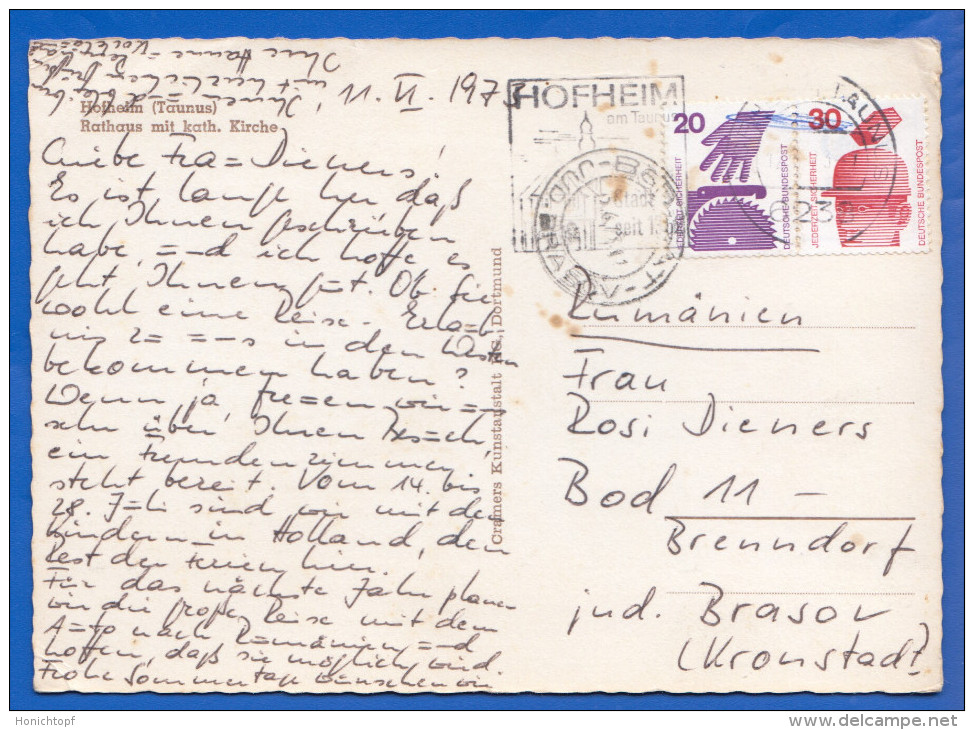 11. VI. 1975
Hofheim (Taunus)
Rathaus mit kath. Kirche
Liebe Frau Dieners!
Es ist lange her, daß
ich Ihnen geschrieben
habe, und ich hoffe es
geht Ihnen gut. Ob Sie
wohl eine Reise-Erlaub
nis zu uns in den Westen
bekommen haben?
Wenn ja, freuen wir uns
sehr über Ihren Besuch,
ein Fremdenzimmer
steht bereit. Vom 14. bis
28. Juli sind wir mit den
Kindern in Holland, den
Rest der Ferien hier.
Für das nächste Jahr planen
wir die große Reise mit dem
Auto nach Rumänien und
hoffen, daß sie möglich wird.
Frohe Sommertage wünschen wir
Ihnen und bleiben
mit herzlichen Grüßen
Ihre Hanne
Cramers Kunstanstalt KG., Dortmund
HOFHEIM
am Taunus
Stadt
seit 13
20
JEDERZEIT SICHERHEIT
DEUTSCHE BUNDESPOST
30
JEDERZEIT SICHERHEIT
DEUTSCHE BUNDESPOST
Rumänien
Frau
Rosi Dieners
Bod 11 -
Brenndorf
jud. Brasov
(Kronstadt)
Honichtopf
delcampe.net